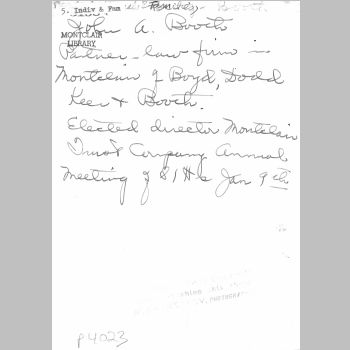 5. Indiv & Fam
John A. Booth
MONTCLAIR
LIBRARY
Partner - law firm in
Montclair of Boyd, Dodd
Keer & Booth.
Elected director Montclair
Trust Company Annual
Meeting of S/H's Jan 9th
P4023